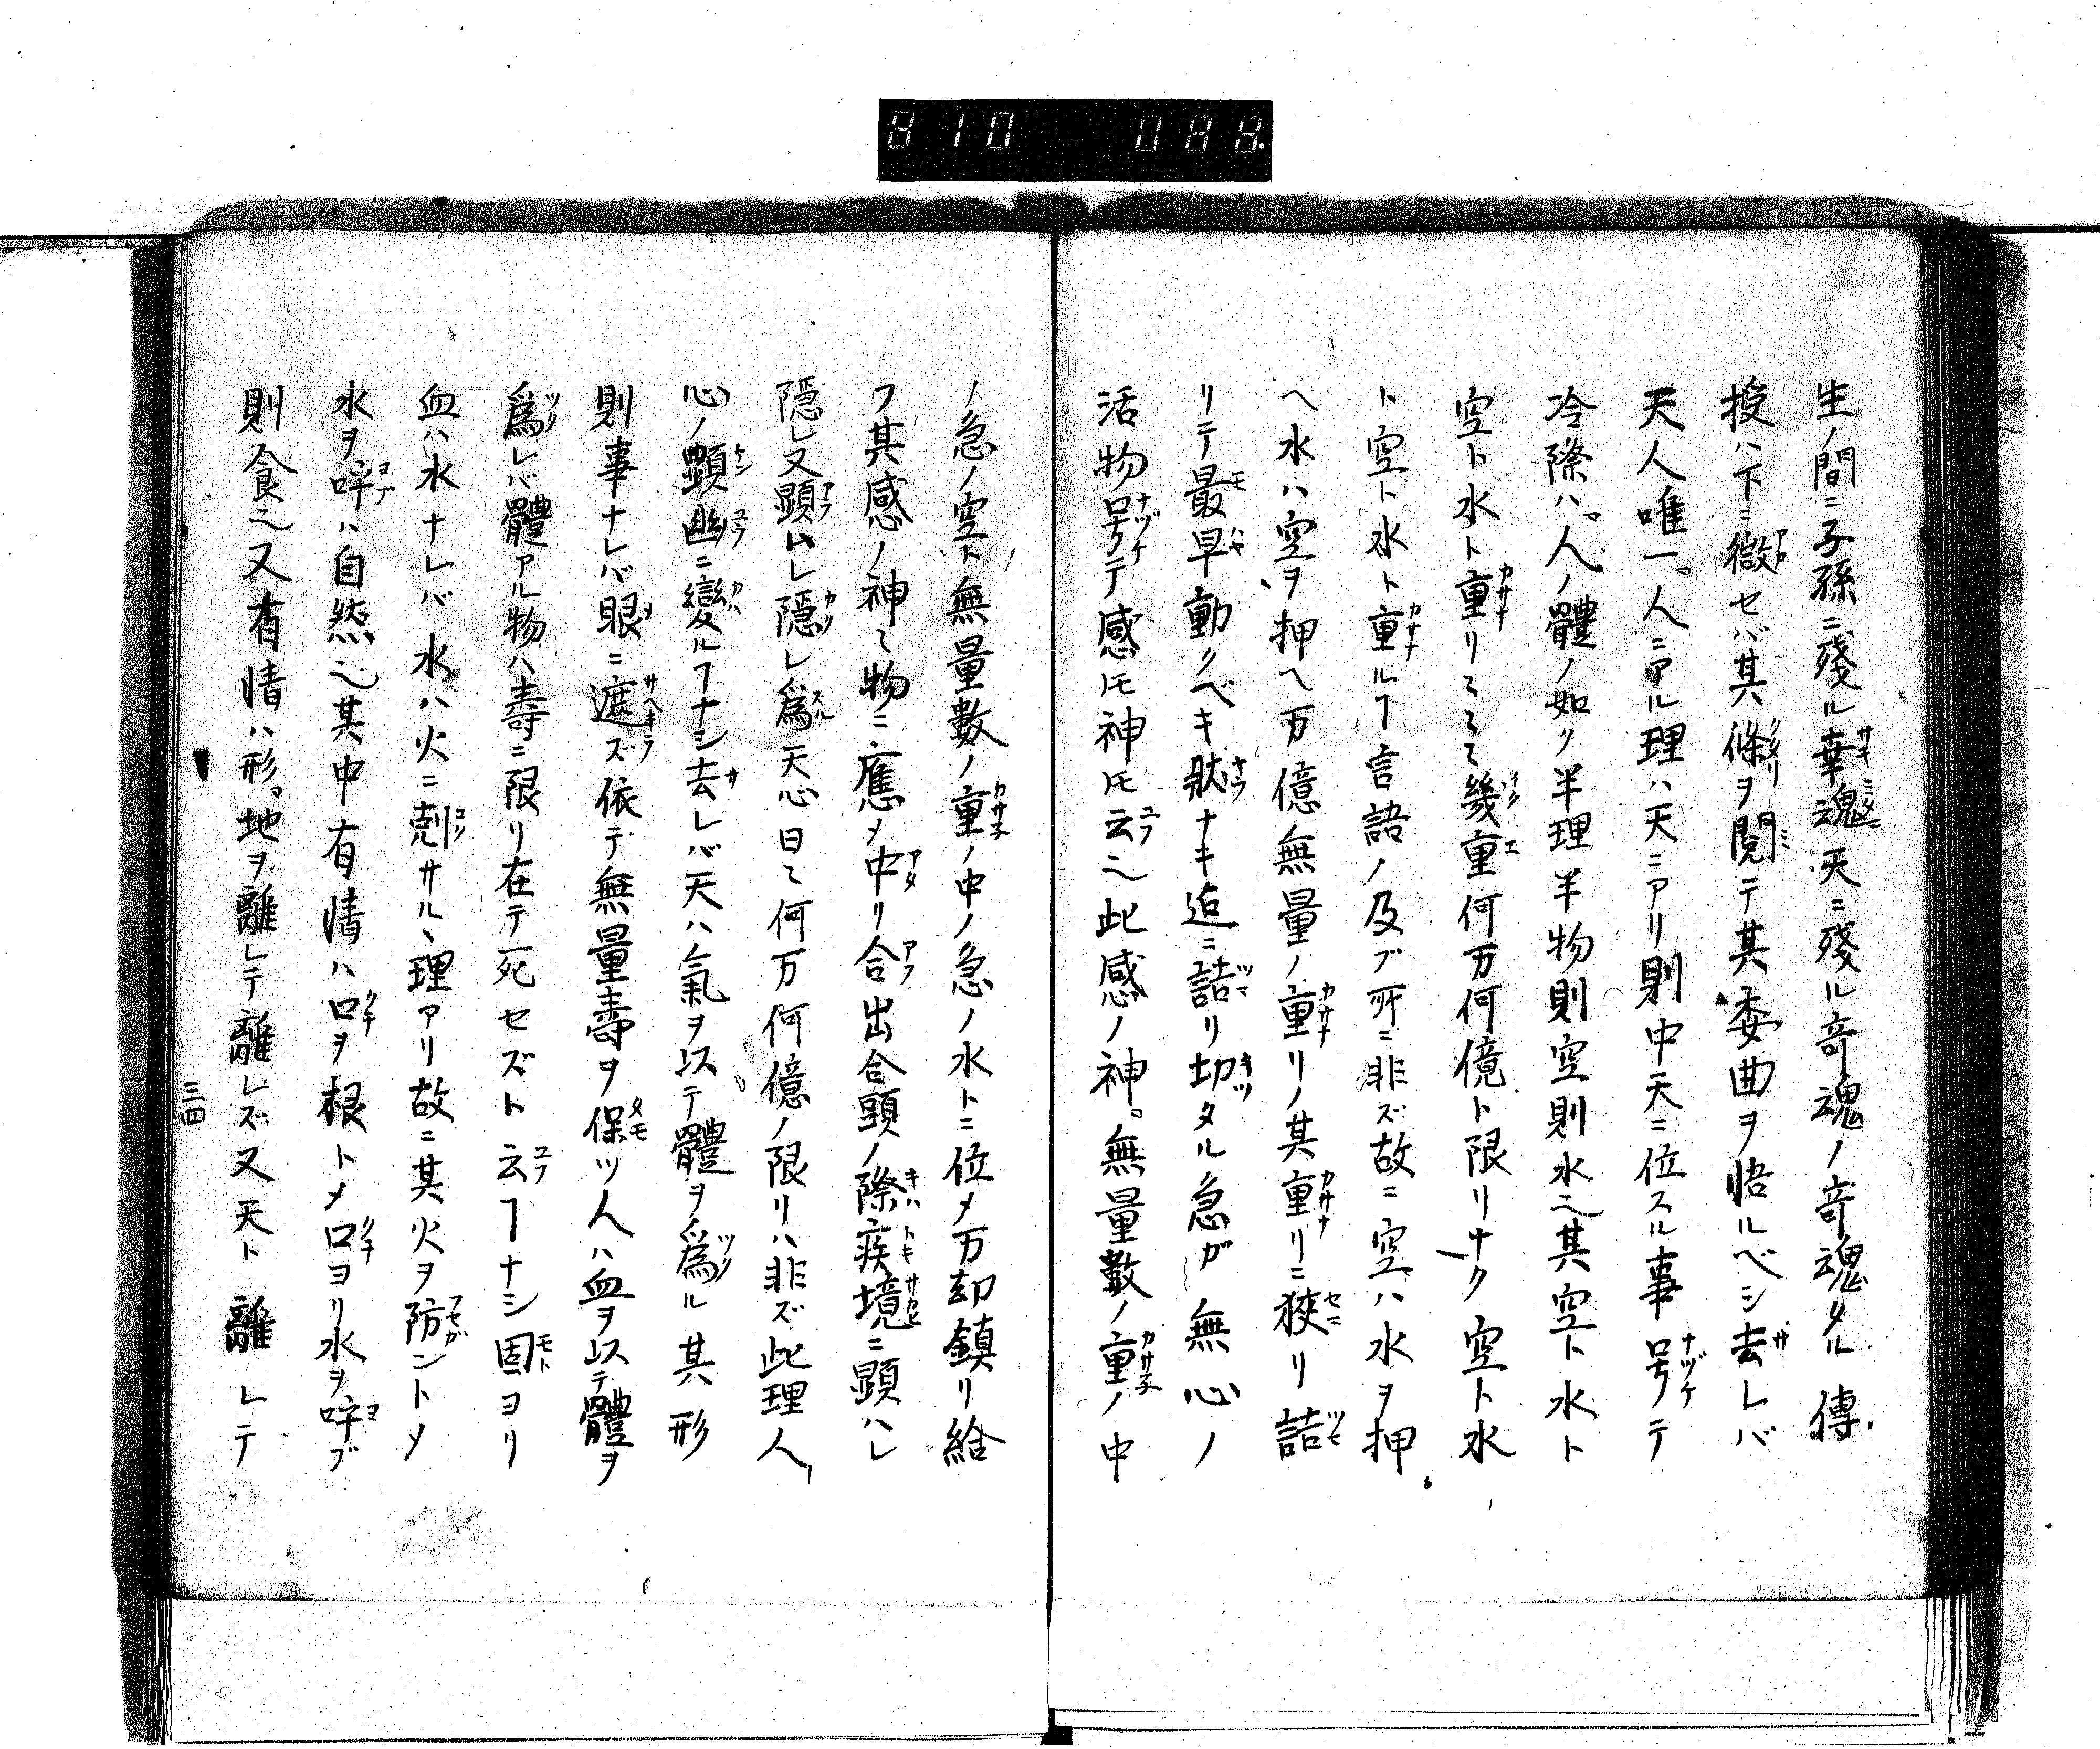 810 088.
生ノ間ニ子孫ニ殘ル幸魂天ニ殘ル竒魂ノ竒魂タル傳
授ハ下ニ徴セバ其條ヲ閲テ其委曲ヲ悟ルベシ去レバ
天人唯一。人ニアル理ハ天ニアリ則中天ニ位スル事号テ
冷際ハ。人ノ體ノ如ク半理半物則空則水㞢其空ト水ト
空ト水ト重リミミミ幾重何万何億ト限リナク空ト水
ト空ト水ト重ルヿ言語ノ及ブ所ニ非ズ故ニ空ハ水ヲ押
ヘ水ハ空ヲ押ヘ万億無量ノ重リノ其重リニ狹リ詰
リテ最早動クベキ狀ナキ迫ニ詰リ切タル急ガ無心ノ
活物号テ感𪜈神𪜈云㞢此感ノ神。無量數ノ重ノ中
ノ急ノ空ト無量數ノ重ノ中ノ急ノ水トニ位メ万却鎮リ給
フ其感ノ神ミ物ニ應メ中リ合出合頭ノ際疾境ニ顕ハレ
隠レ又顕ハレ隠レ爲天心日ミ何万何億ノ限リハ非ズ此理人
心ノ顕幽ニ變ルヿナシ去レバ天ハ氣ヲ以テ體ヲ爲ル其形
則事ナレバ眼ニ遮ズ依テ無量壽ヲ保ツ人ハ血ヲ以テ體ヲ
爲レバ體アル物ハ壽ニ限リ在テ死セズト云ヿナシ固ヨリ
血ハ水ナレバ水ハ火ニ剋サルヽ理アリ故ニ其火ヲ防ントメ
水ヲ呼ハ自然㞢其中有情ハ口ヲ根トメ口ヨリ水ヲ呼ブ
則食㞢又有情ハ形。地ヲ離レテ離レズ又天ト離レテ
三四